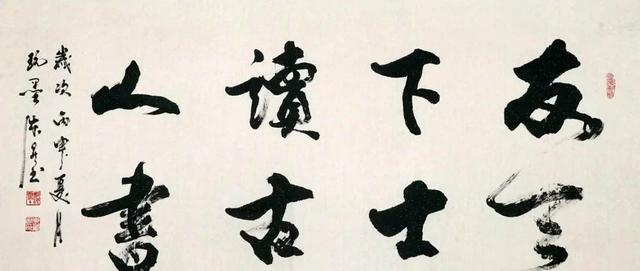 友天
下士
讀古
人書
歲次丙申夏月
玩墨